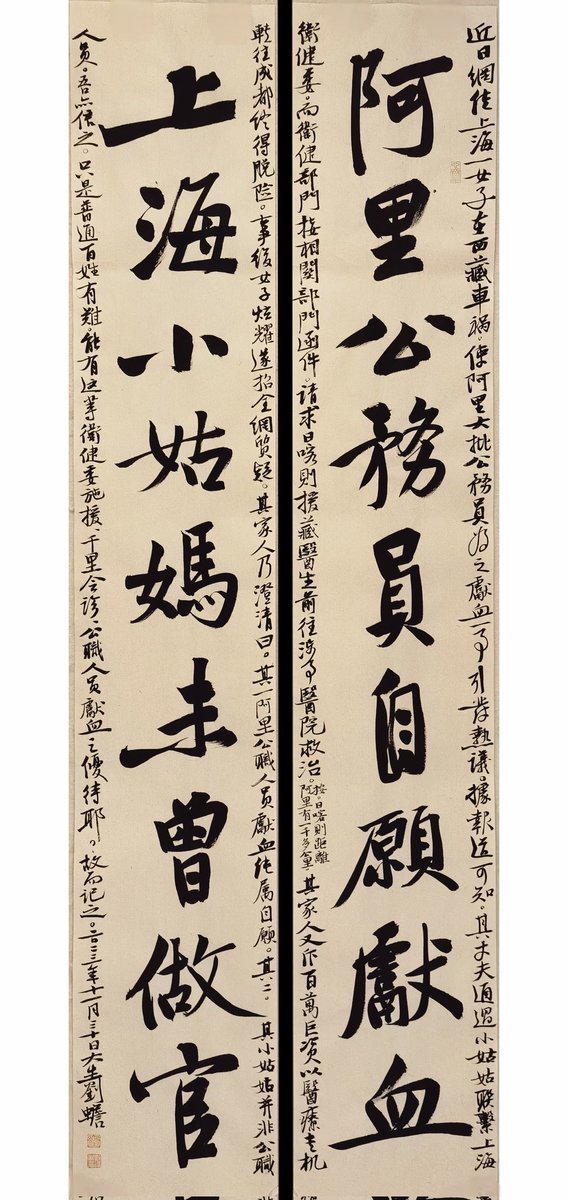 近日網传上海一女子在西藏車祸。使阿里大批公務員为之獻血一事引发熱議。據報道可知。其丈夫通過小姑姑聯繫上海
阿里公務員自願獻血
衛健委。向衛健部門按相關部門函件。請求日喀則援藏醫生前往涉事醫院救治。
按。日喀則距離
阿里有一千多
其家人又斥百萬巨资以醫療专机
轉往成都终得脱险。事後女子炫耀遂招全網質疑。其家人乃澄清曰。其一阿里公職人員獻血纯属自願。其二。其小姑姑并非公職
上海小姑媽未曾做官
人员。吾亦信之。只是普通百姓有難。能有这等衛健委施援、千里会診、公職人员獻血之優待耶。故而記之。二〇二三年十一月三十日大生劉蟾